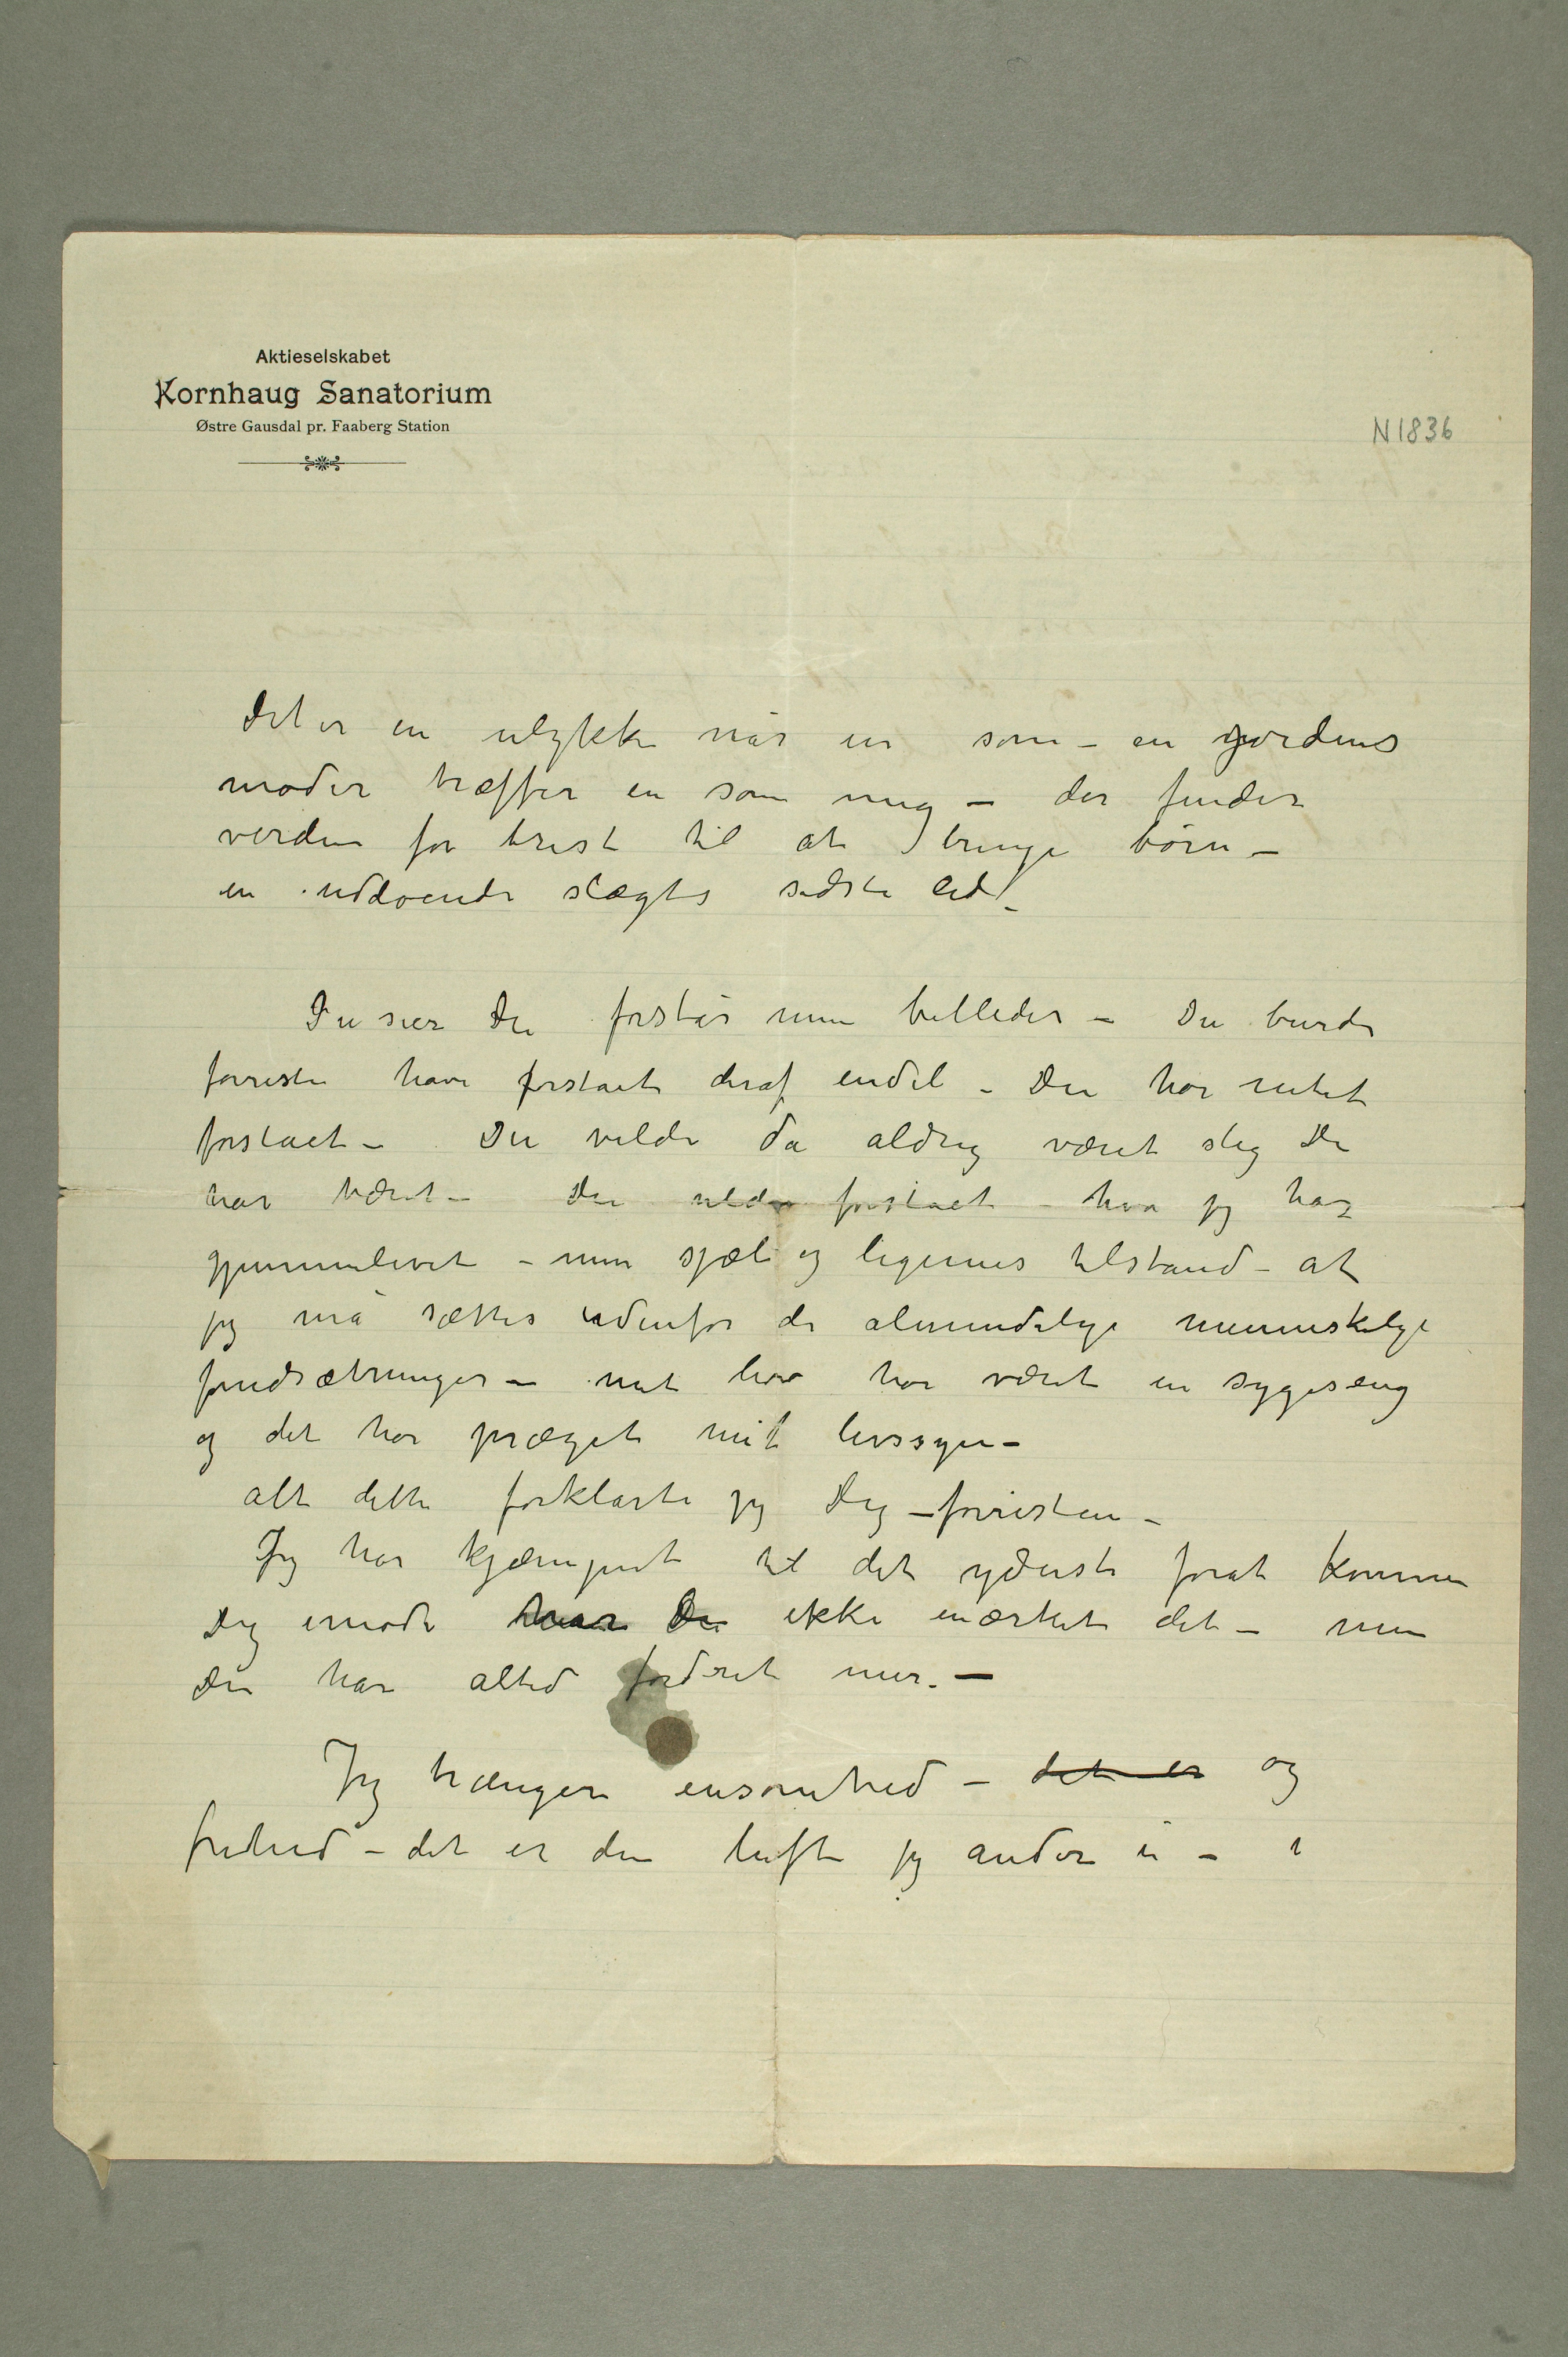 Aktieselskabet
Kornhaug Sanatorium
Østre Gausdal pr. Faaberg Station
N 1836
Det er en ulykke når en som – en jordens
moder træffer en som mig – der finder
verden for trist til at bringe børn –
en uddøende slægts sidste led –
Du sier Du forstår mine billeder – Du burde
forresten have forstaaet deraf endel – Du har intet
forstaaet – Du vilde da aldrig været slig Du
har været – Du vilde forstaaet – hva jeg har
gjennemlevet – min sjæls og legemes tilstand – at
jeg må sættes udenfor de almindelige menneskelige
forudsætninger – mit liv har været en sygeseng
og det har præget mit livssyn –
alt dette forklarte jeg Dig – forresten –
Jeg har kjæmpet til det yderste forat komme
Dig imøde har Du ikke mærket det – men
Du har altid fordret mer. –
Jeg trænger ensomhed – det er og
frihed – det er den luft jeg ander i – i